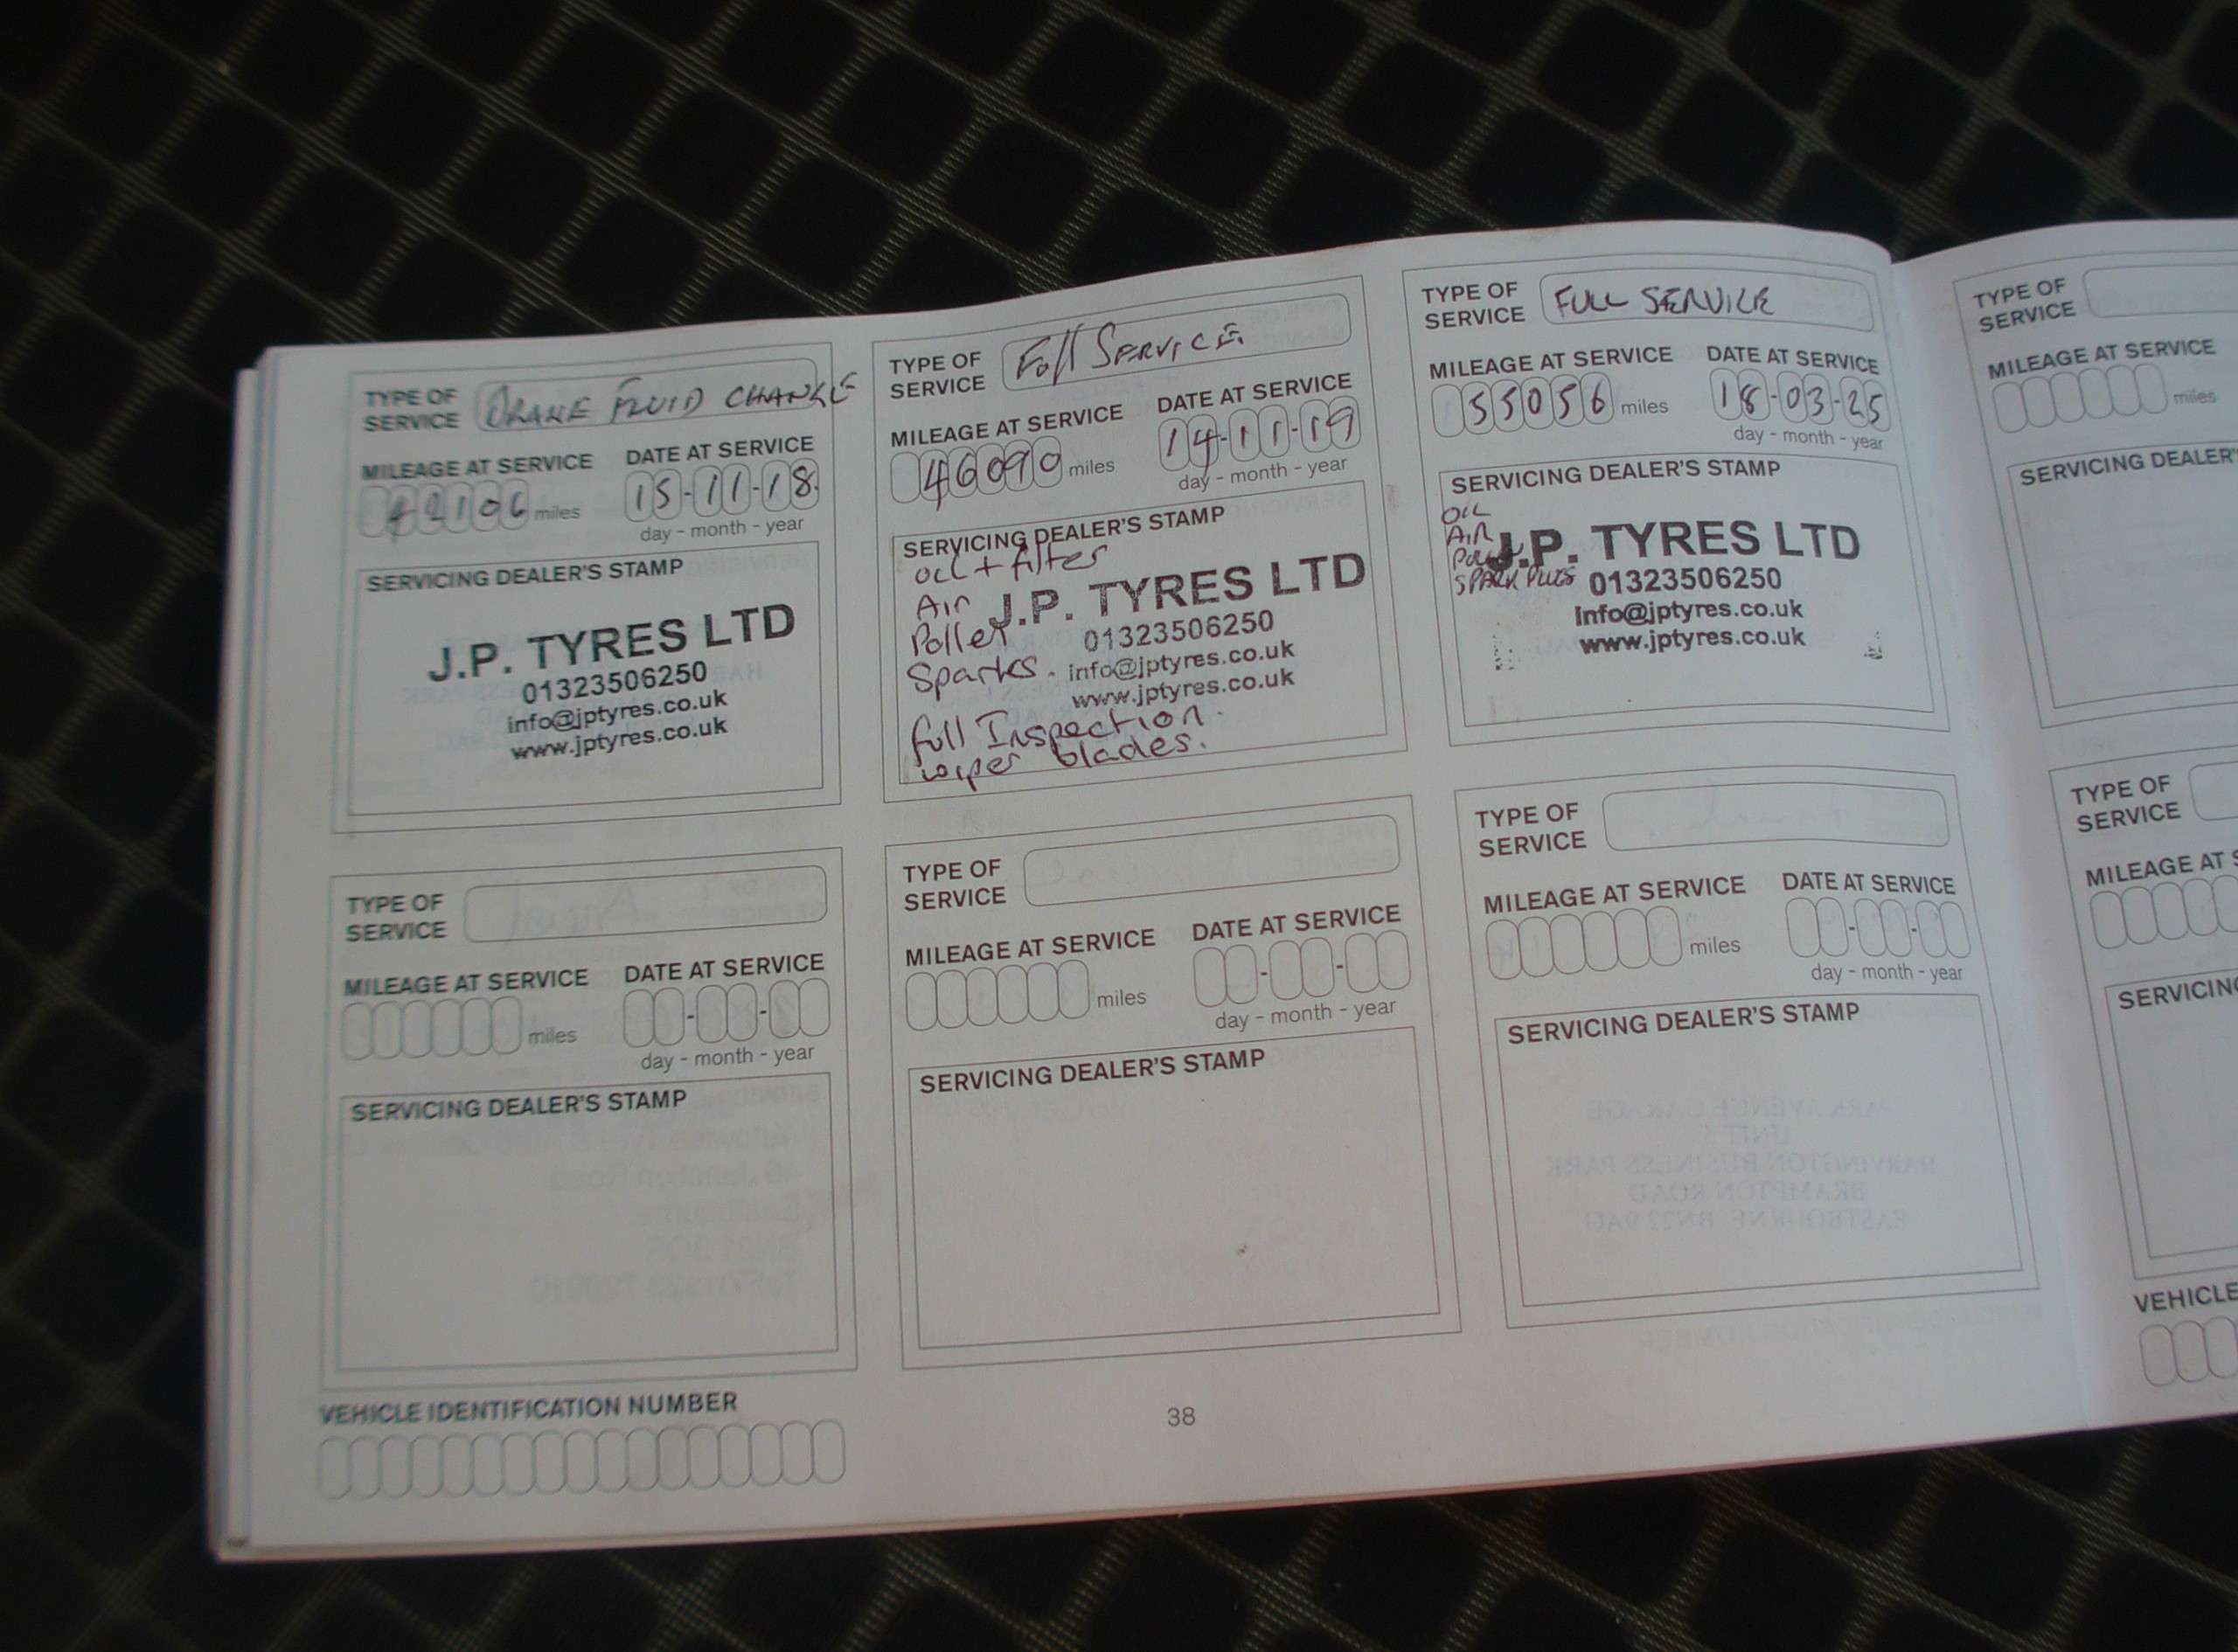 TYPE OF
SERVICE
BRAKE FLUID CHANGE
MILEAGE AT SERVICE
42106 miles
DATE AT SERVICE
15-11-18
day - month - year
SERVICING DEALER'S STAMP
J.P. TYRES LTD
01323506250
info@jptyres.co.uk
www.jptyres.co.uk
TYPE OF
SERVICE
Full SERVICE
MILEAGE AT SERVICE
46090 miles
DATE AT SERVICE
14-11-19
day - month - year
SERVICING DEALER'S STAMP
oil + filter
Air
Pollen
Sparks.
J.P. TYRES LTD
01323506250
info@jptyres.co.uk
www.jptyres.co.uk
full Inspection.
wiper blades.
TYPE OF
SERVICE
FULL SERVICE
MILEAGE AT SERVICE
55056 miles
DATE AT SERVICE
18-03-25
day - month - year
SERVICING DEALER'S STAMP
OIL
AIR
SPARK PLUGS
J.P. TYRES LTD
01323506250
info@jptyres.co.uk
www.jptyres.co.uk
TYPE OF
SERVICE
MILEAGE AT SERVICE
miles
SERVICING DEALER'
TYPE OF
SERVICE
MILEAGE AT SERVICE
miles
DATE AT SERVICE
day - month - year
SERVICING DEALER'S STAMP
TYPE OF
SERVICE
MILEAGE AT SERVICE
miles
DATE AT SERVICE
day - month - year
SERVICING DEALER'S STAMP
TYPE OF
SERVICE
MILEAGE AT SERVICE
miles
DATE AT SERVICE
day - month - year
SERVICING DEALER'S STAMP
TYPE OF
SERVICE
MILEAGE AT S
SERVICING
VEHICLE IDENTIFICATION NUMBER
38
VEHICLE